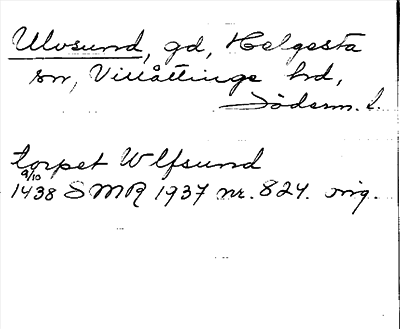 Ulvsund, gd, Helgesta
sn, Villåttinge hd,
Söderm. l.
torpet Wlfsund
9/10
1438 SMR 1937 nr. 824. orig.